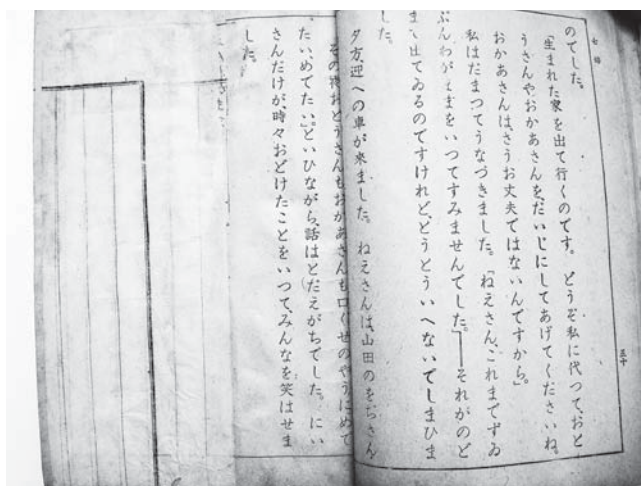 のでした。
「生まれた家を出て行くのです。どうぞ私に代つて、おと
うさんやおかあさんを、だいじにしてあげてくださいね。
おかあさんは、さうお丈夫ではないんですから。」
私はだまつてうなづきました。「ねえさん、これまでずゐ
ぶんわがまゝをいつてすみませんでした。」――それがのど
まで出てゐるのですけれど、どうとういへないでしまひま
した。
夕方、迎への車が來ました。ねえさんは、山田のをぢさん
五十
その時おとうさんもおかあさんも口ぐせのやうにめで
たい、めでたい。」といひながら、話はとだえがちでした。にい
さんだけが、時々おどけたことをいつて、みんなを笑はせま
した。